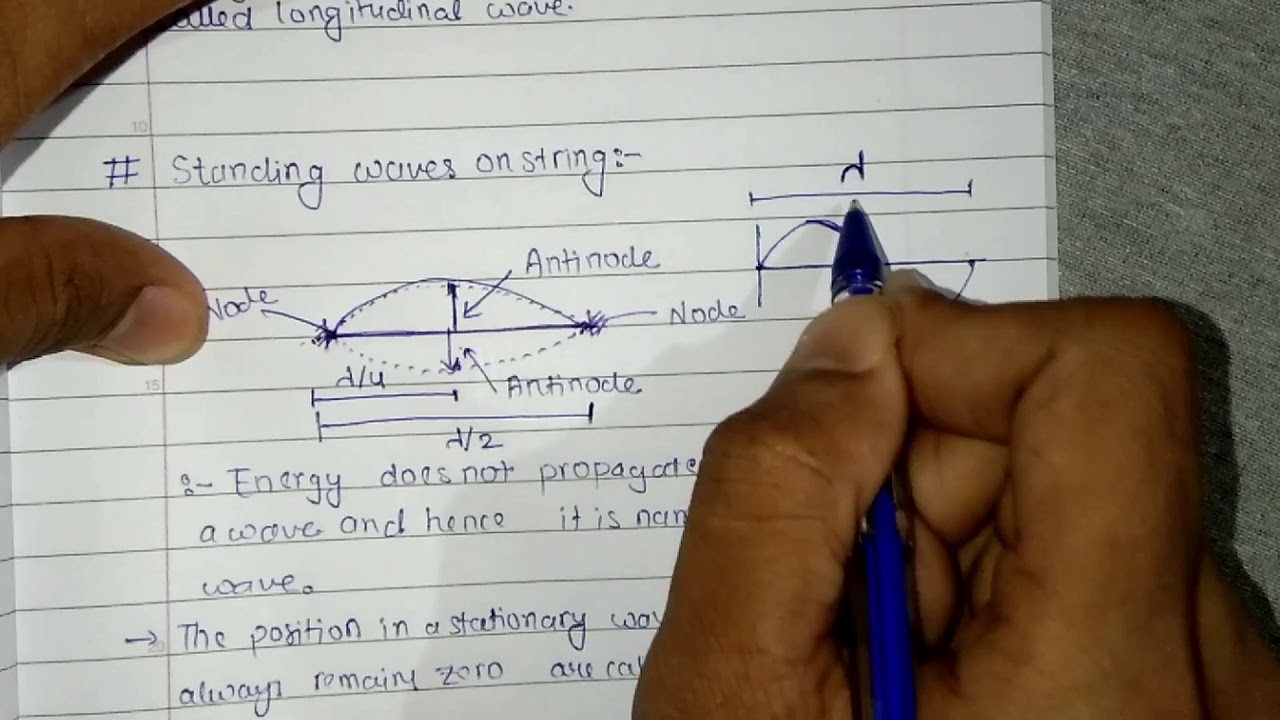 called longitudinal wave.
10
# Standing waves on string:-
λ
Antinode
Node
Node
λ/4
Antinode
15
λ/2
:- Energy does not propagate
a wave and hence it is
wave.
→ The position in a stationary
20
always remains zero are